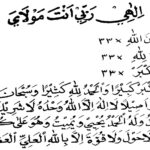 اِلٰهِيْ رَبِّيْ اَنْتَ مَوْلَايَ
اللهِ × ٣٣
لِلّٰهِ × ٣٣
× ٣٣
كَبِيْرًا وَالْحَمْدُ لِلّٰهِ كَثِيْرًا وَسُبْحَانَ
لَا اِلٰهَ اِلَّا اللهُ وَحْدَهُ لَا شَرِيْكَ
وَلَهُ الْحَمْدُ يُحْيِيْ وَيُمِيْتُ وَهُوَ عَلٰى كُلِّ
حَوْلَ وَلَا قُوَّةَ اِلَّا بِاللهِ الْعَلِيِّ